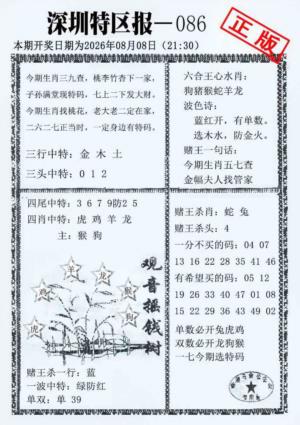 深圳特区报—086
正版
本期开奖日期为2026年08月08日（21:30）
今期生肖三九查，桃李竹杏下一家，
子孙满堂现特码，七上二下发大财。
今期生肖找桃花，老大老二定在家，
二六二七正当时，一定身边有特码。
三行中特：金 木 土
三头中特：0 1 2
六合王心水肖：
狗猪猴蛇羊龙
波色诗：
蓝红开，有单数。
选木水，防金火。
赌王一句话：
今期生肖五七查
金幅夫人找管家
四尾中特：3 6 7 9防2 5
四肖中特：虎 鸡 羊 龙
主：猴 狗
观音摇钱树
鸡
羊
龙
猴
虎
狗
赌王杀一行：蓝
一波中特：绿防红
单双：单 39
赌王杀肖：蛇 兔
赌王杀头：4
一分不买的码：04 07
13 16 22 28 35 41 46
有希望买的码：05 12
19 26 33 40 47 01 08
15 22 29 36 43 49 02
单数必开兔虎鸡
双数必开龙狗猴
一七今期选特码